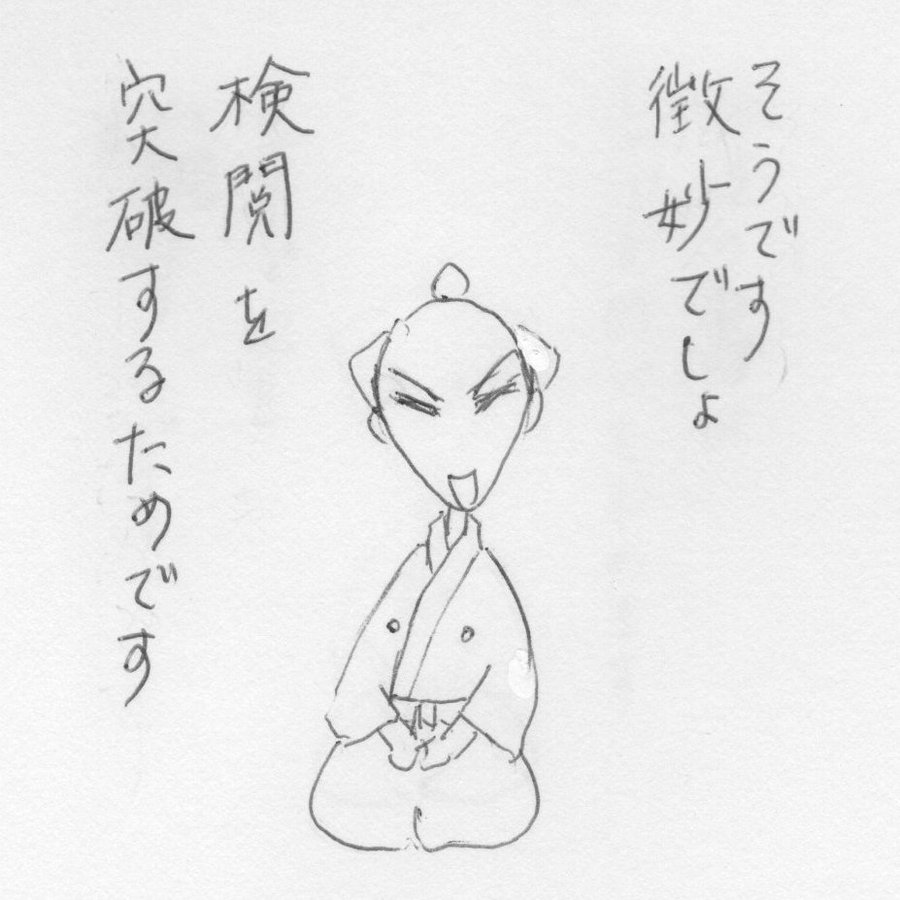 そうです
微妙でしょ
検閲を
突破するためです